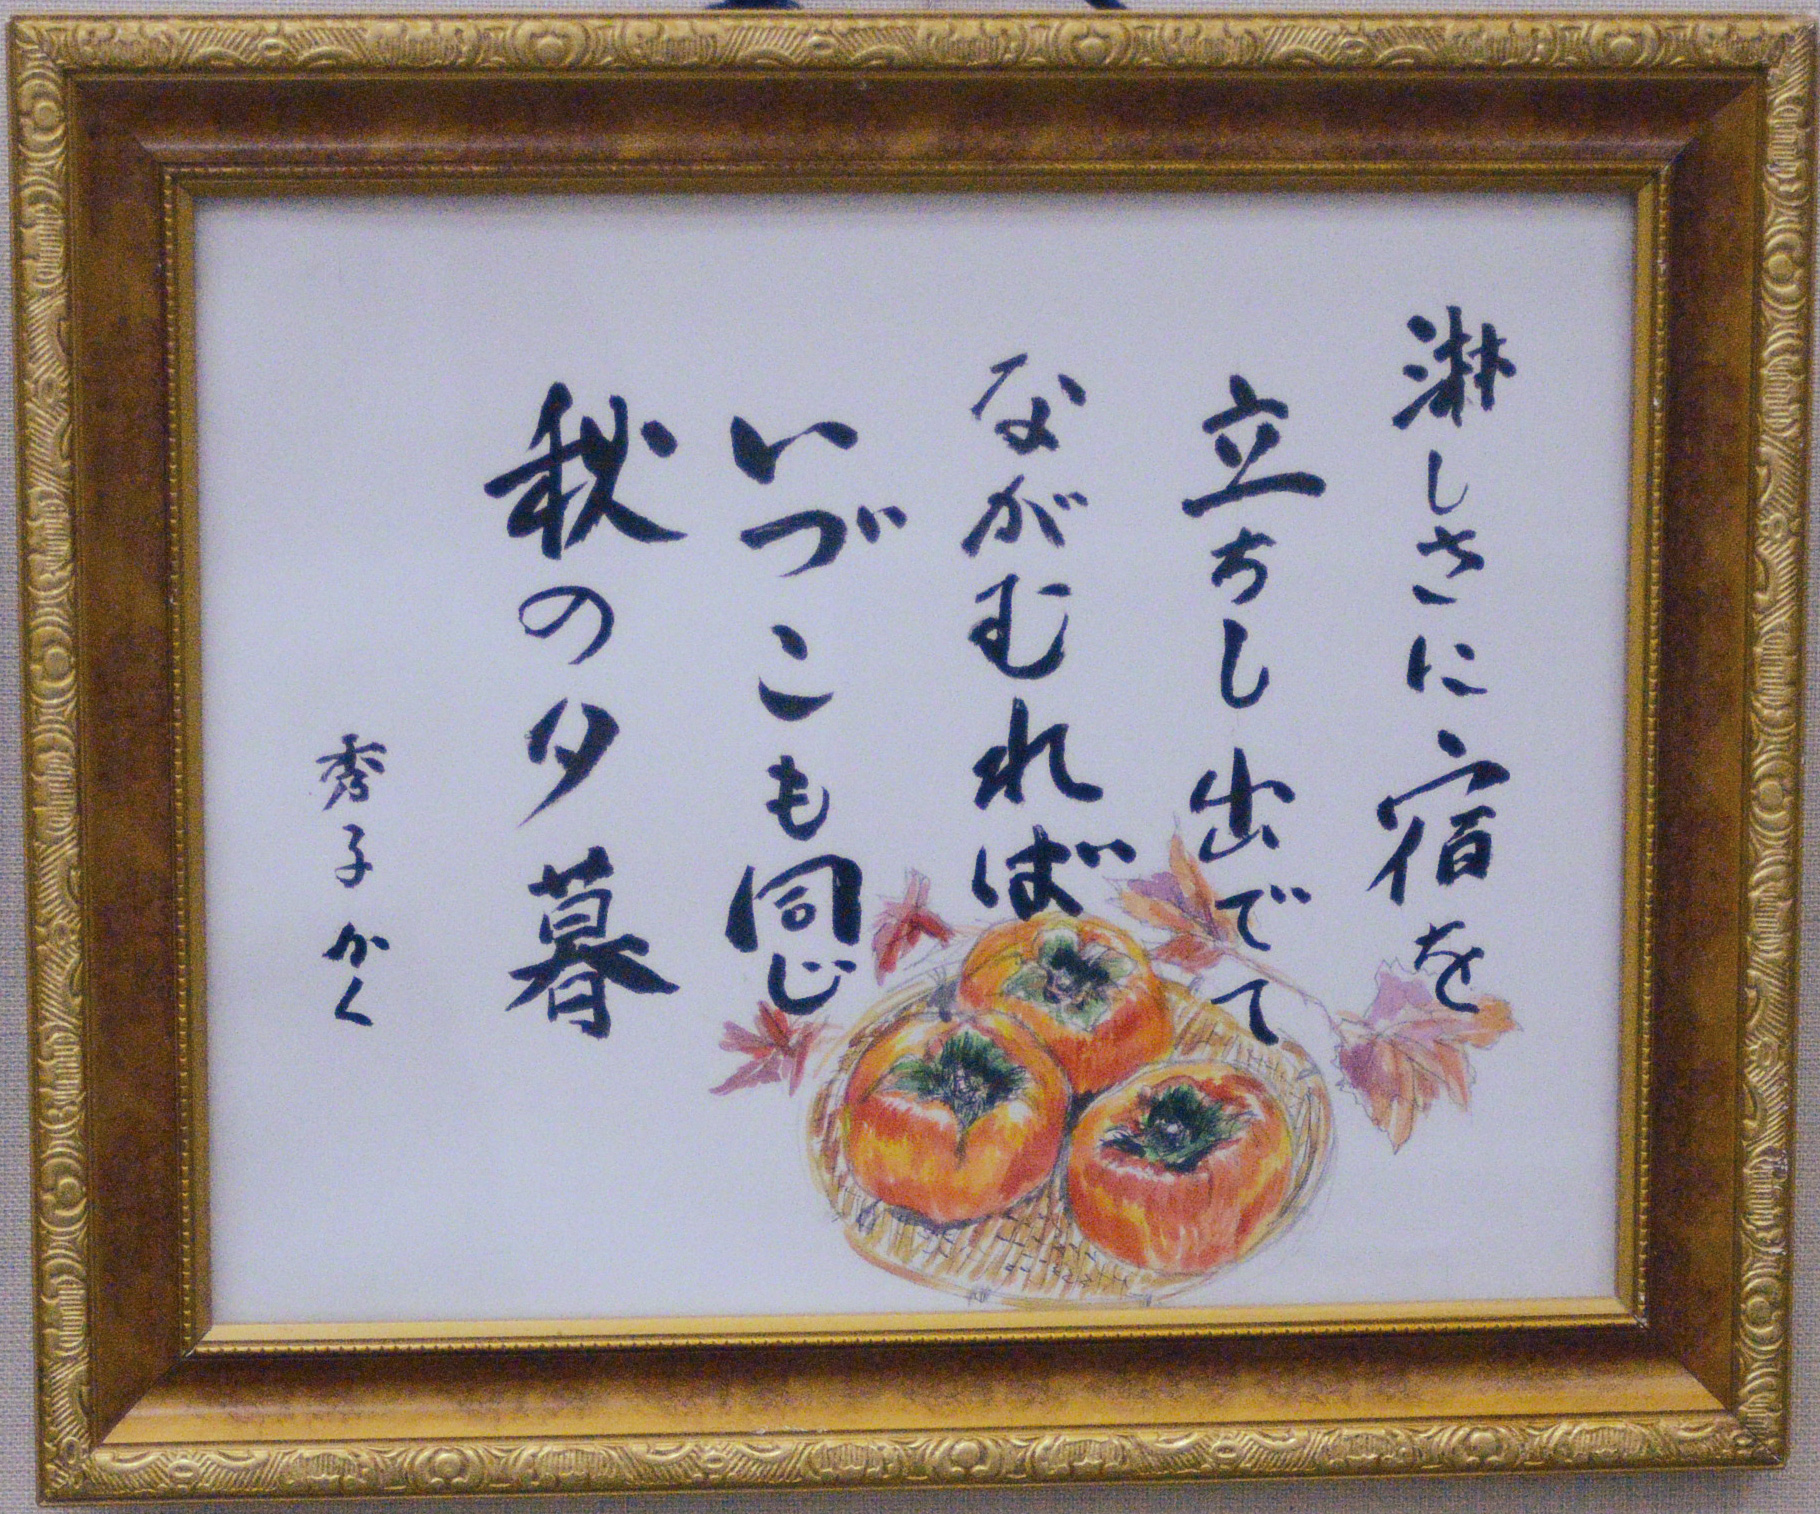 淋しさに宿を
立ちし出でて
ながむれば
いづこも同じ
秋の夕暮
秀子かく